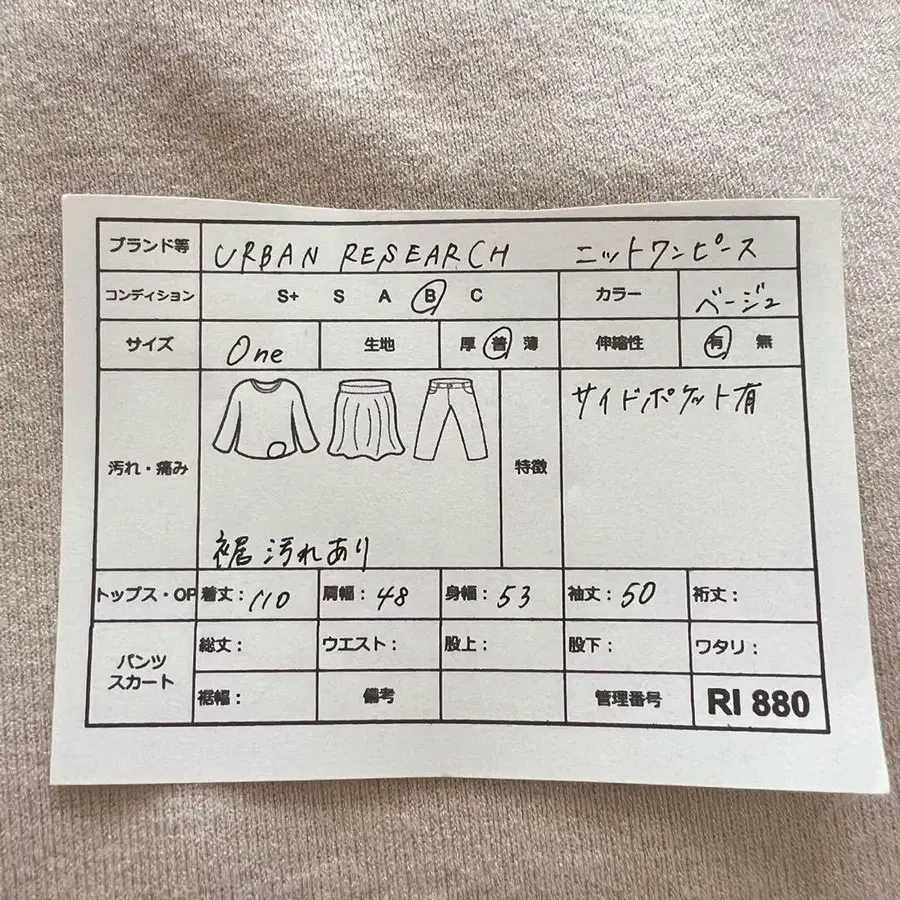 ブランド等 URBAN RESEARCH ニットワンピース
コンディション S+ S A B C カラー ベージュ
サイズ One 生地 厚 普 薄 伸縮性 有 無
汚れ・痛み 裾汚れあり 特徴 サイドポケット有
トップス・OP 着丈：110 肩幅：48 身幅：53 袖丈：50 裄丈：
パンツ スカート 総丈： ウエスト： 股上： 股下： ワタリ：
裾幅： 備考 管理番号 RI 880